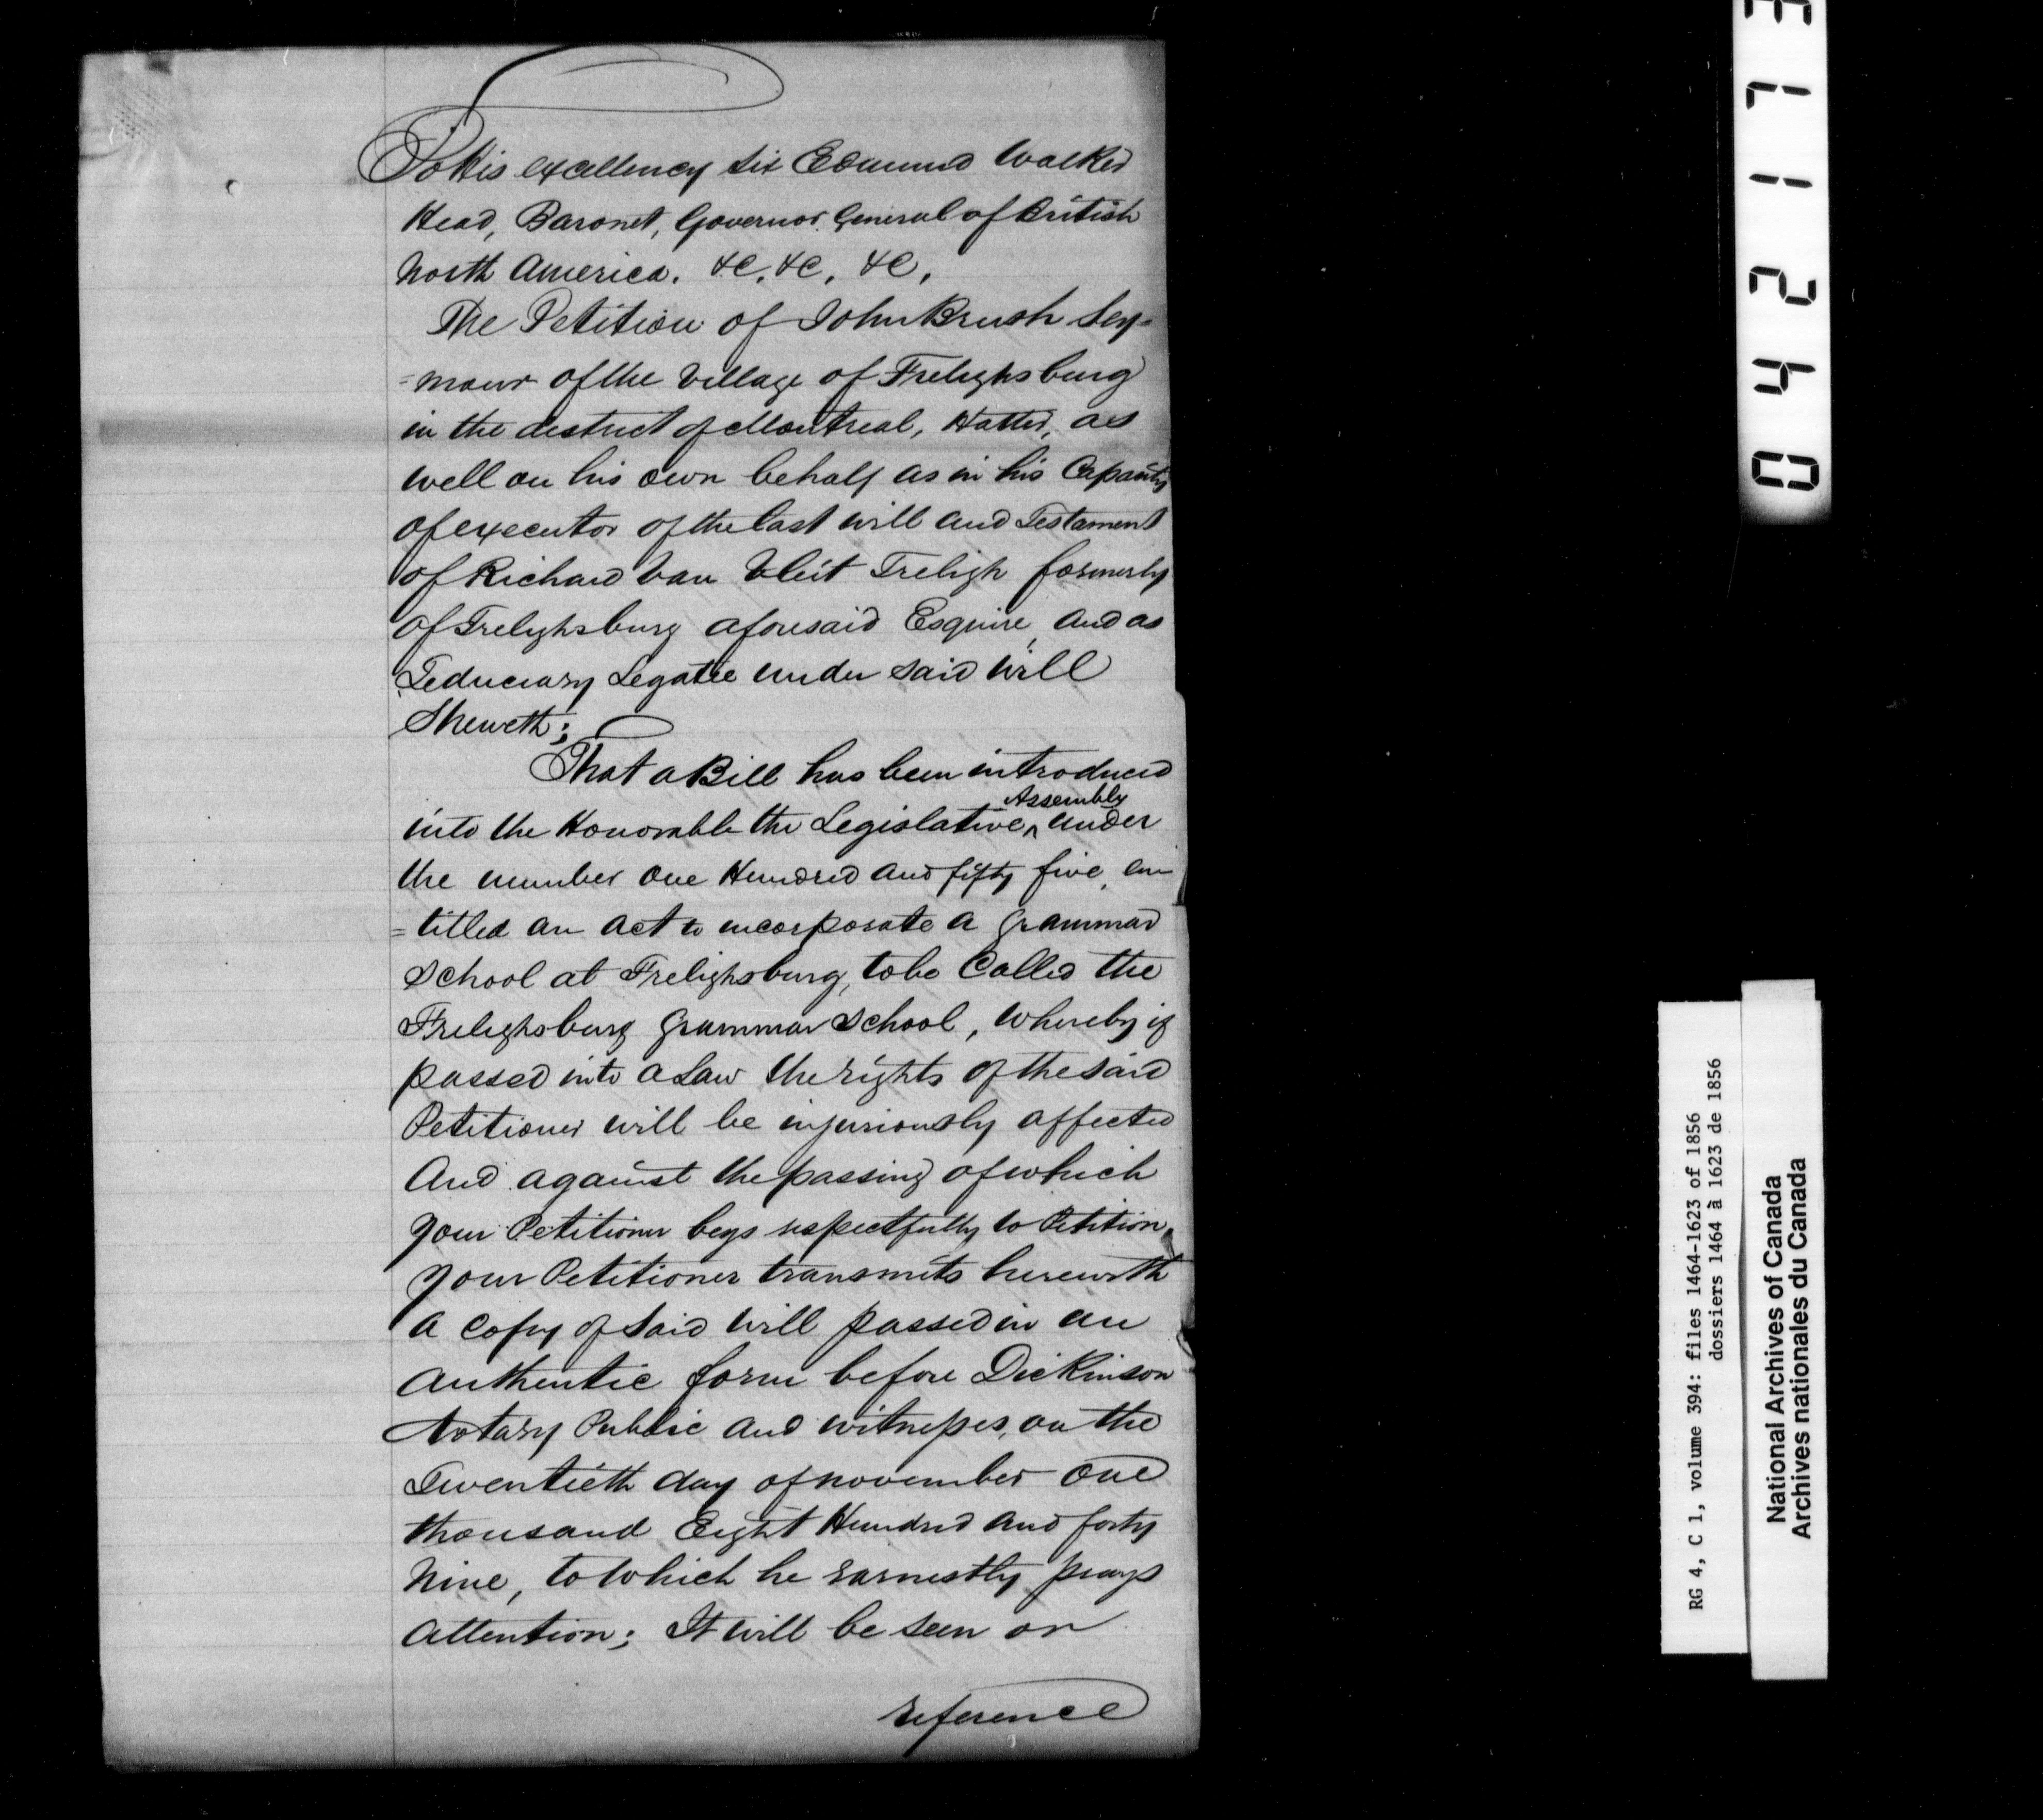 To His excellency Sir Edmund Walker
Head, Baronet, Governor General of British
North America. &C, &C, &C,
The Petition of John Brush Sey=
=mour of the Village of Frelighsburg
in the district of Montreal, Hatter, as
well on his own behalf as in his Capacity
of executor of the last will and Testament
of Richard Van Vleit Freligh formerly
of Frelighsburg aforesaid Esquire, and as
Feduciary Legatee under said will
Sheweth;
That a Bill has been introduced
into the Honorable the Legislative ^ Assembly under
the number one Hundred and fifty five, en
=titled an act to incorporate a Grammar
School at Frelighsburg, to be Called the
Frelighsburg Grammar School, whereby if
passed into a Law the rights of the said
Petitioner will be injuriously affected
And against the passing of which
your Petitioner begs respectfully to Petition.
Your Petitioner transmits herewith
a Copy of said will passed in an
authentic form before Dickinson
Notary Public and witnesses, on the
Twentieth day of november one
thousand Eight Hundred and forty
Nine, to which he earnestly prays
attention; It will be seen on
reference
042173
RG 4, C 1, volume 394: files 1464-1623 of 1856
dossiers 1464 à 1623 de 1856
National Archives of Canada
Archives nationales du Canada